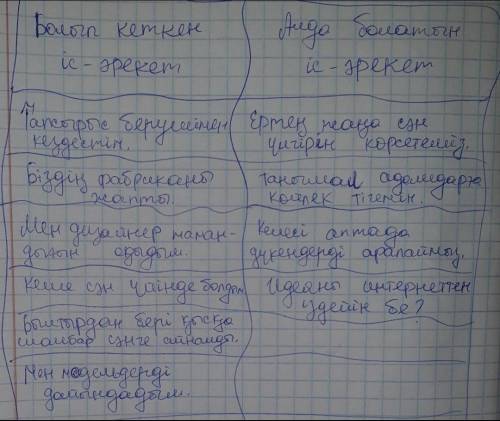 Болып кеткен
іс-әрекет
Алда болатын
іс-әрекет
Тапсырыс берушімен
кездестім.
Ертең жаңа сән
үлгірін көрсетеміз.
Біздің фабриканы
жапты.
Танымал адамдарға
көйлек тігемін.
Мен дизайнер маман-
дығын оқыдым.
Келесі аптада
дүкендерді аралаймыз.
Кеше сән үйінде болдым
Идеаны интернеттен
іздейін бе?
Былтырдан бері қысқа
шалбар сәнге айналды.
Мен модельдерді
дайындадым.